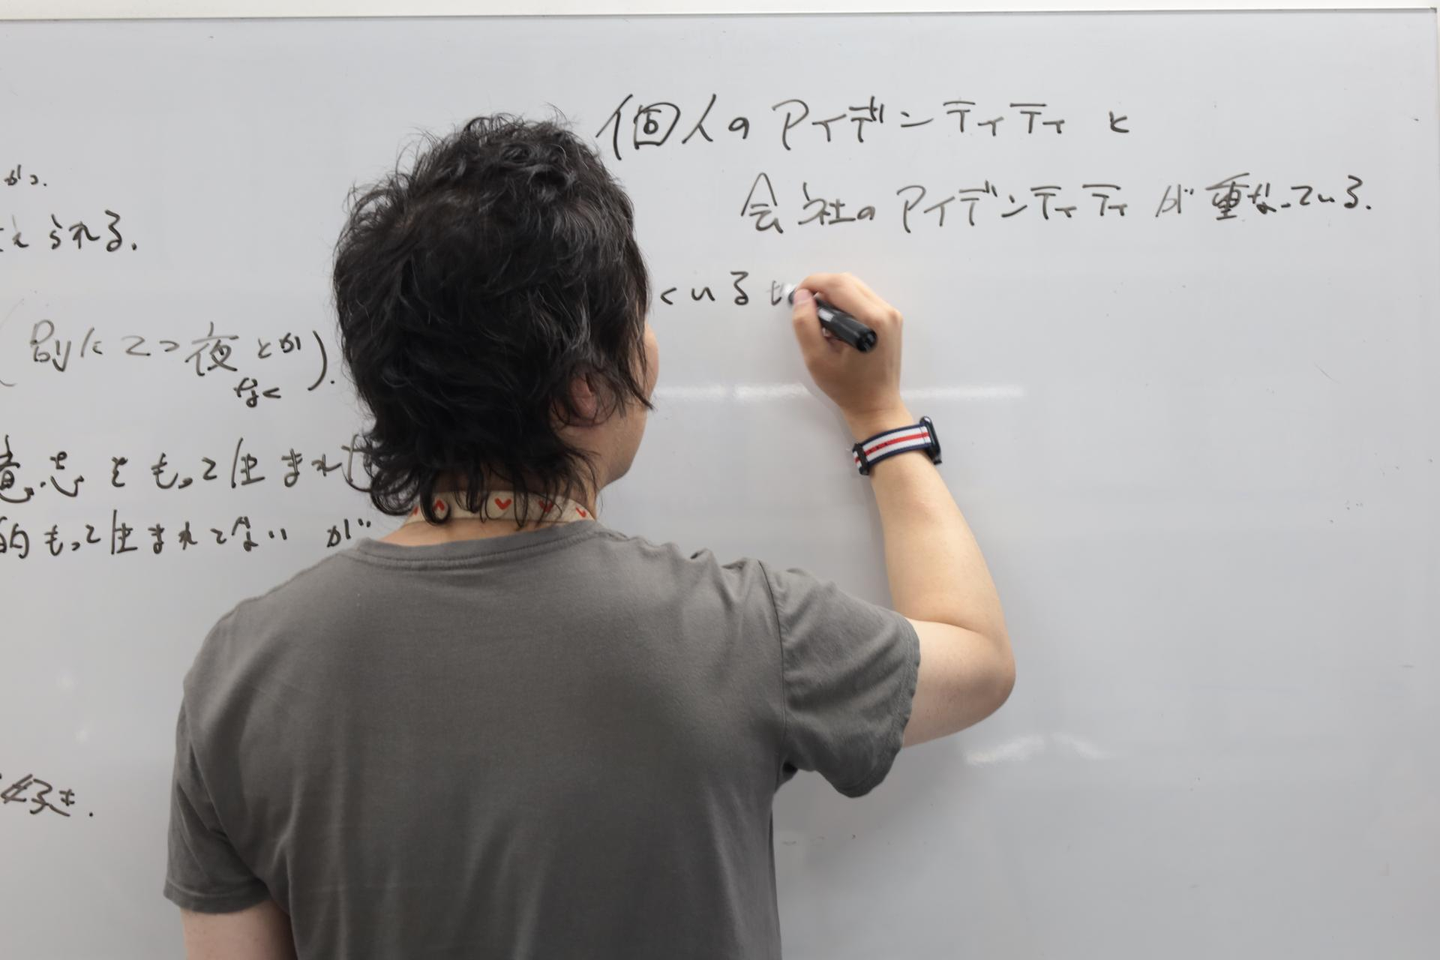 個人のアイデンティティと
会社のアイデンティティが重なっている.
ている
えられる.
(別に2つ夜とか).
なく
意志をもって生まれ
的もって生まれてないが
好き.